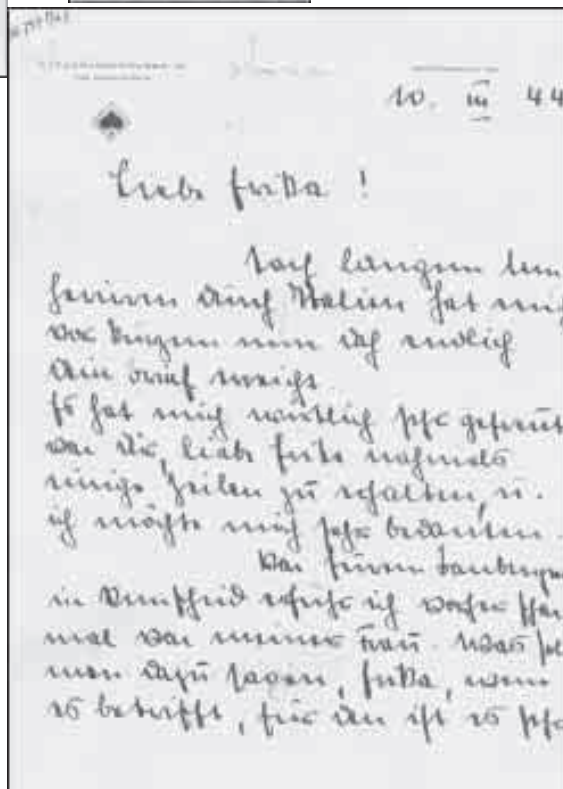 10. III 44
Liebe Fritta!
Nach langem Um
herirren durch Italien hat mich
vor kurzem nun doch endlich
Dein Brief erreicht.
Es hat mich wirklich sehr gefreut
von Dir, liebe nochmals
einige Zeilen zu erhalten, u.
ich möchte mich sehr bedanken.
Von Euren
in Remscheid erfuhr ich vorher schon
mal von meiner Frau. Was soll
man dazu sagen, Fritta, wenn
es betrifft, für den ist es sehr